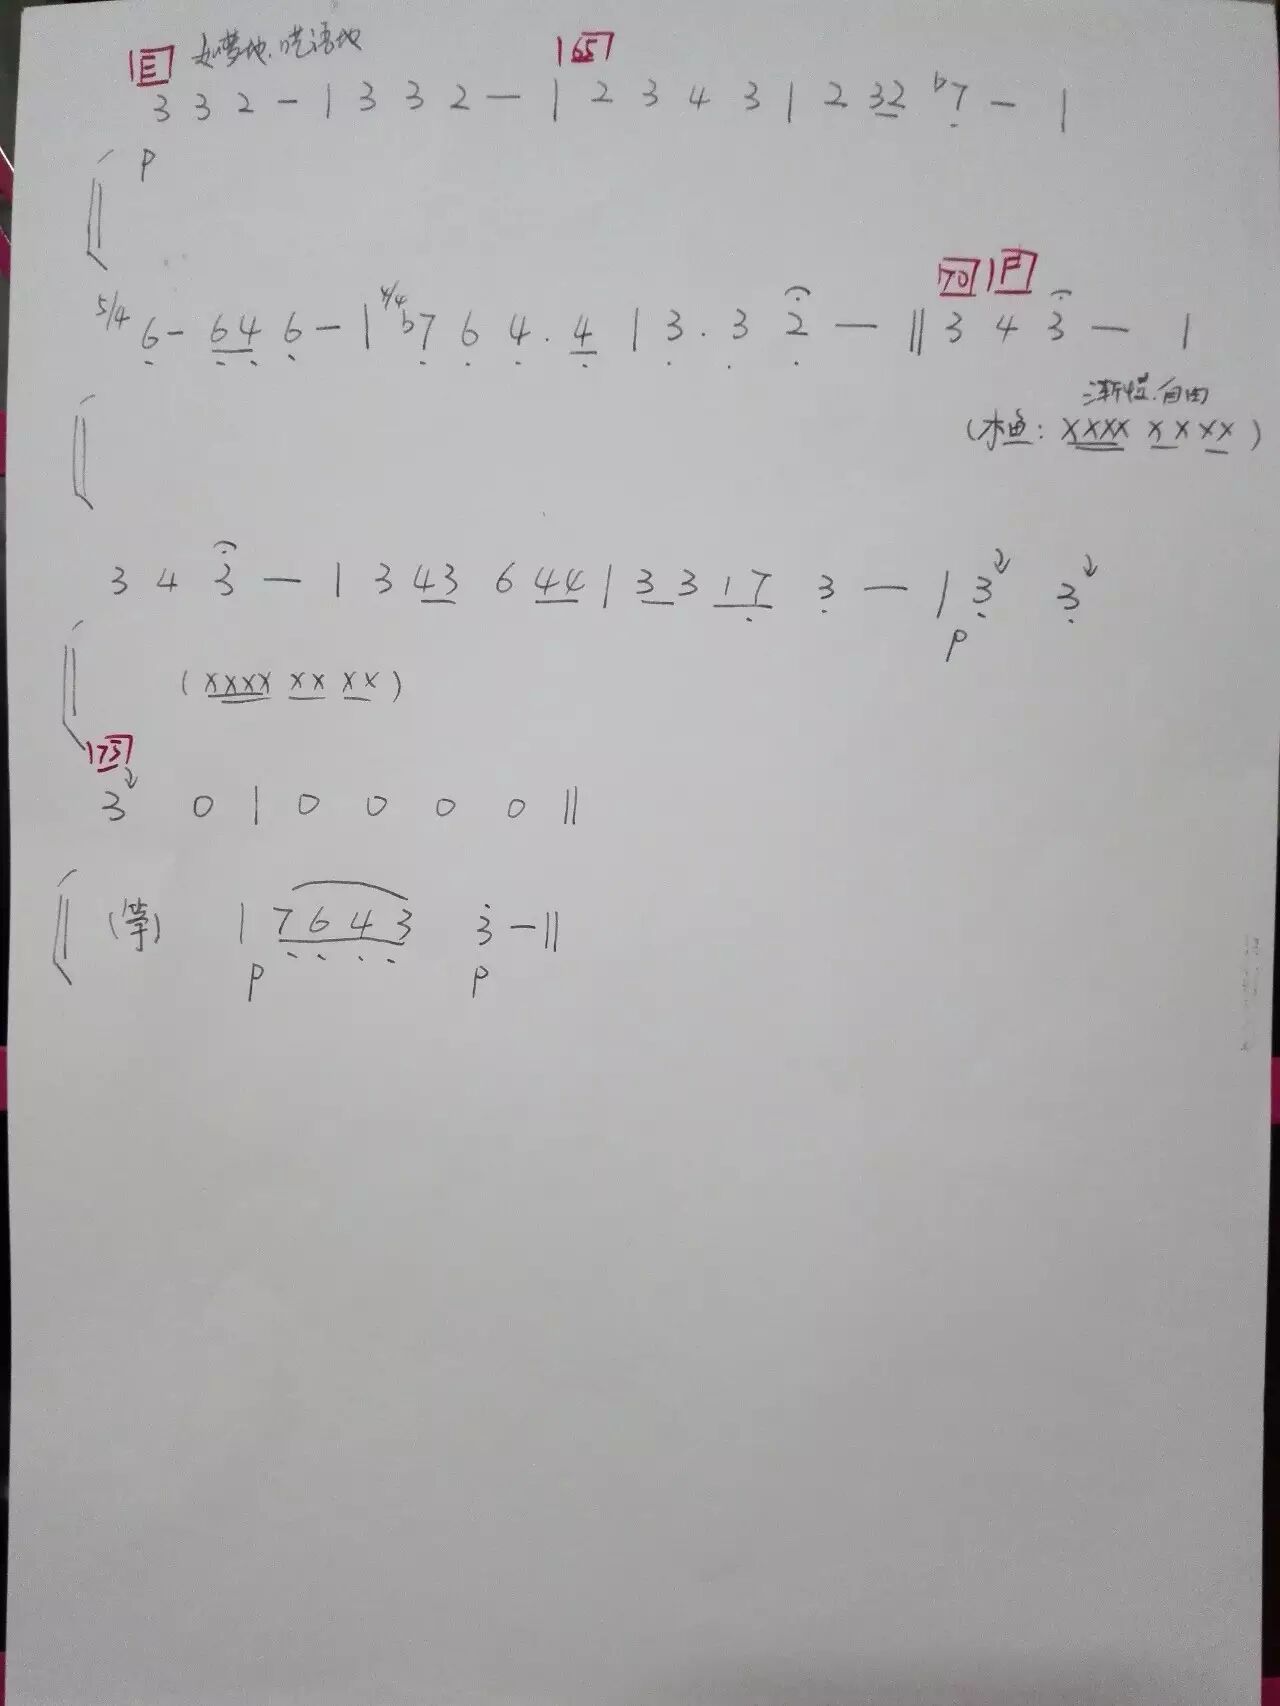 E 如梦地、呓语地 65
3 3 2 - | 3 3 2 — | 2 3 4 3 | 2 32 b7 - |
p
70 F
5/4 6 - 64 6 - | 4/4 b7 6 4 . 4 | 3 . 3 2 — || 3 4 3 — |
渐慢、自由
(木鱼: XXXX XX XX)
3 4 3 — | 3 43 6 44 | 3 3 17 3 — | 3 3
p
(XXXX XX XX)
75
3 0 | 0 0 0 0 ||
(筝) | 7643 3 - ||
p p